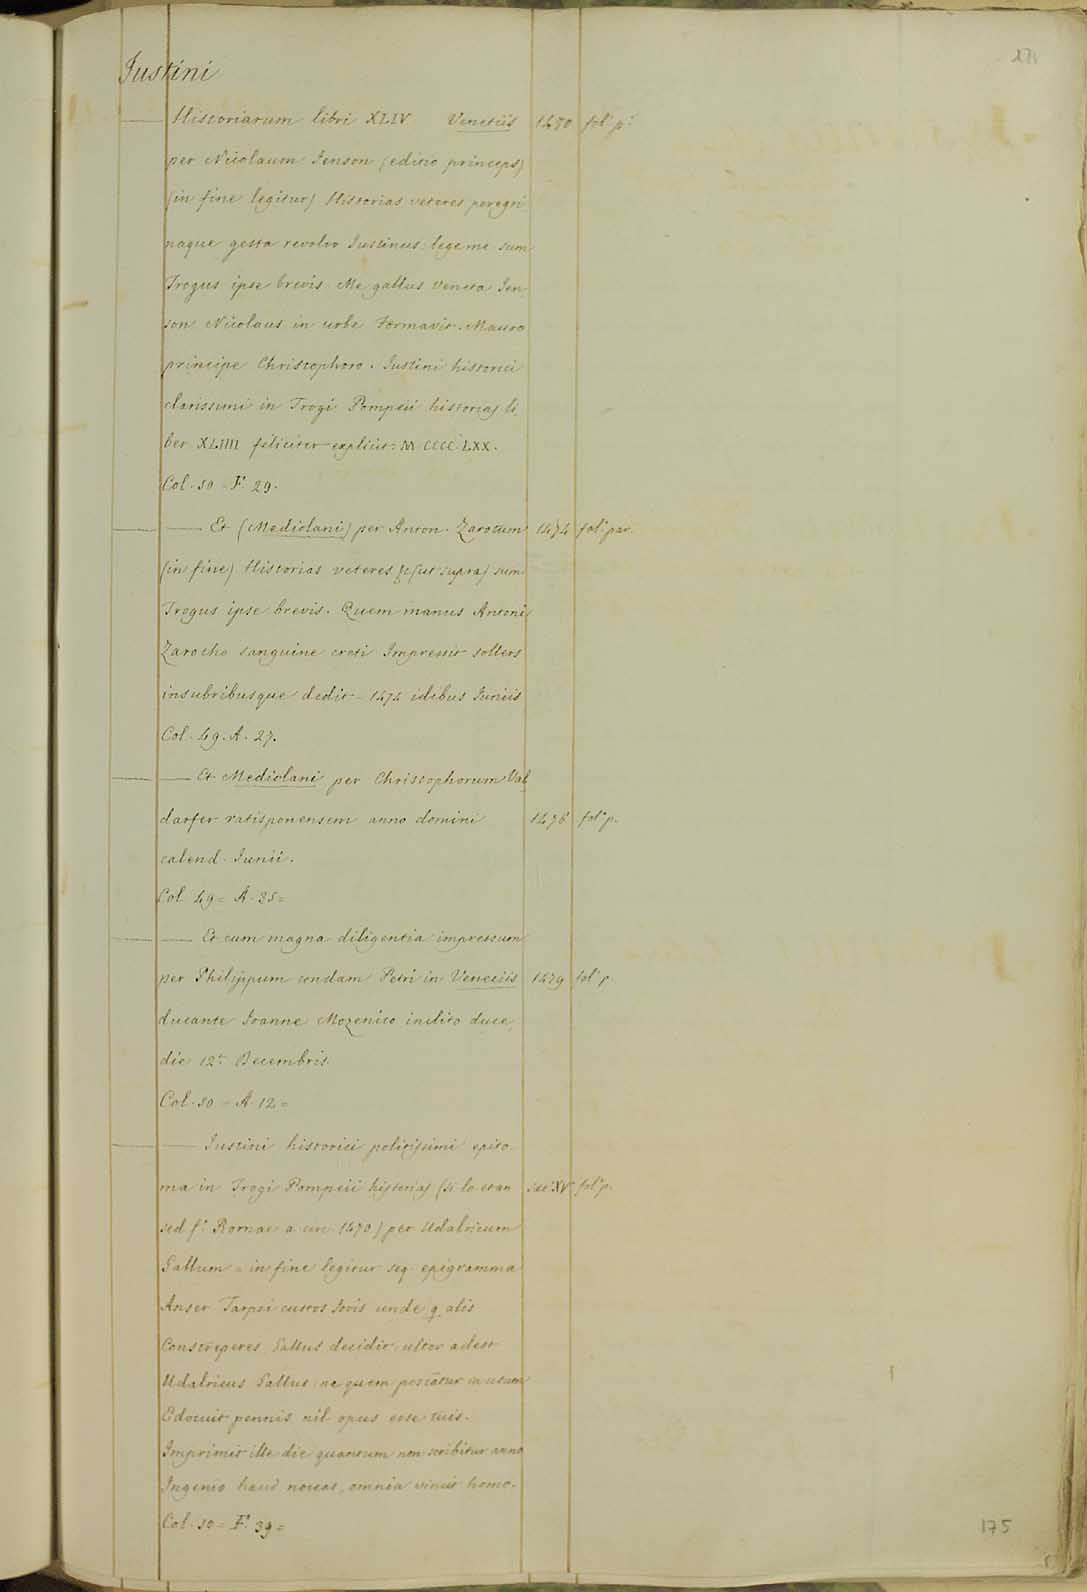 Justini
Historiarum libri XLIV Venetiis 1470 fol. p.
per Nicolaum Jenson (editio princeps)
(in fine legitur) Historias veteres peregri
naque gesta revolvo Justinus. lege me sum
Trogus ipse brevis. Me gallus Veneta Jen
son Nicolaus in urbe Formavit. Mauro
principe Christophoro. Justini historici
clarissimi in Trogi Pompeii historias li
ber XLIIII feliciter explicit: MCCCCLXX.
Col. 50 = F. 29.
Et (Mediolani) per Anton. Zarotum 1474 fol. par.
(in fine) Historias veteres (ut supra) sum
Trogus ipse brevis. Quem manus Antoni
Zarocho sanguine creti Impressit sollers
insubribusque dedit = 1474 idibus Juniis
Col. 49. A. 27.
Et Mediolani per Christophorum Val
darfer ratisponensem anno domini 1476 fol. p.
calend. Junii.
Col 49 = A. 25 =
Et cum magna diligentia impressum
per Philippum condam Petri in Veneciis 1479 fol. p.
ducante Joanne Mozenico inclito duce,
die 12 Decembris.
Col. 50 = A. 12 =
Justini historici politissimi epito
ma in Trogi Pompeii historias XV fol. p.
sed Romae 1470) per Udalricum
Gallum = in fine legitur seq. epigramma
Anser Tarpei custos Jovis unde q alis
Constreperes Gallus decidit, ultor adest
Udalricus Gallus: ne quem poscatur in usum
Edocuit pennis nil opus esse tuis.
Imprimit ille die quantum non scribitur anno
Ingenio haud noceas, omnia vincit homo.
Col. 50 = F. 39 =
175